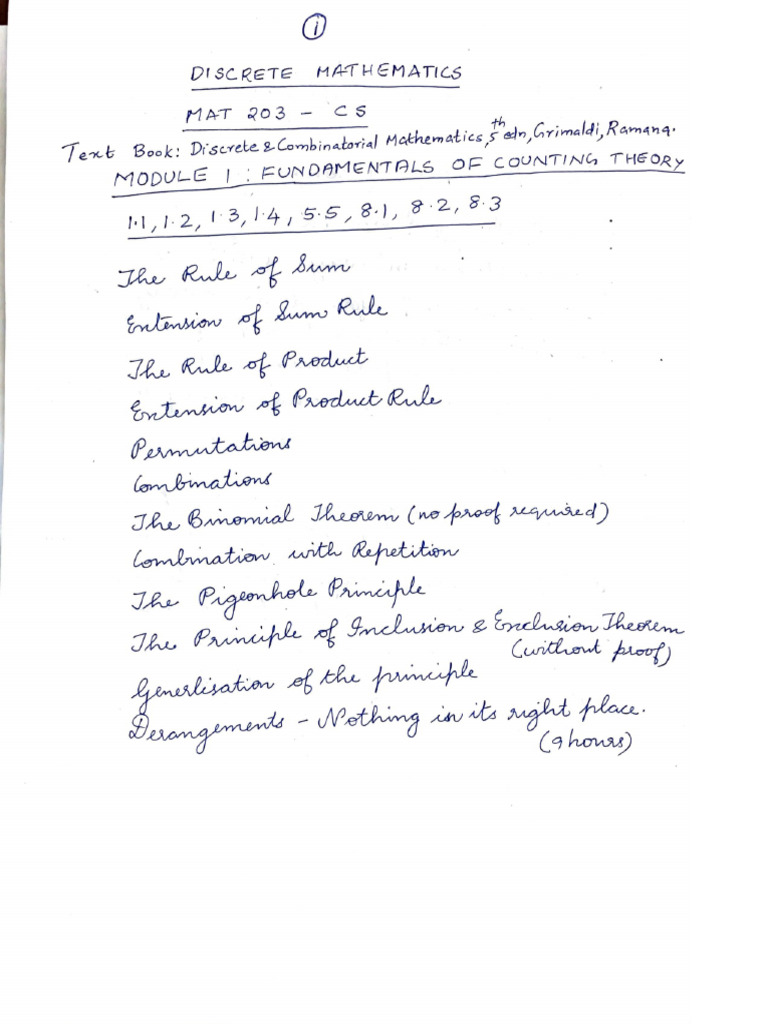 i
DISCRETE MATHEMATICS
MAT 203 - CS
Text Book: Discrete & Combinatorial Mathematics, 5th edn, Grimaldi, Ramana.
MODULE 1 : FUNDAMENTALS OF COUNTING THEORY
1.1, 1.2, 1.3, 1.4, 5.5, 8.1, 8.2, 8.3
The Rule of Sum
Extension of Sum Rule
The Rule of Product
Extension of Product Rule
Permutations
Combinations
The Binomial Theorem (no proof required)
Combination with Repetition
The Pigeonhole Principle
The Principle of Inclusion & Exclusion Theorem
(without proof)
Generlisation of the principle
Derangements - Nothing in its right place.
(9 hours)